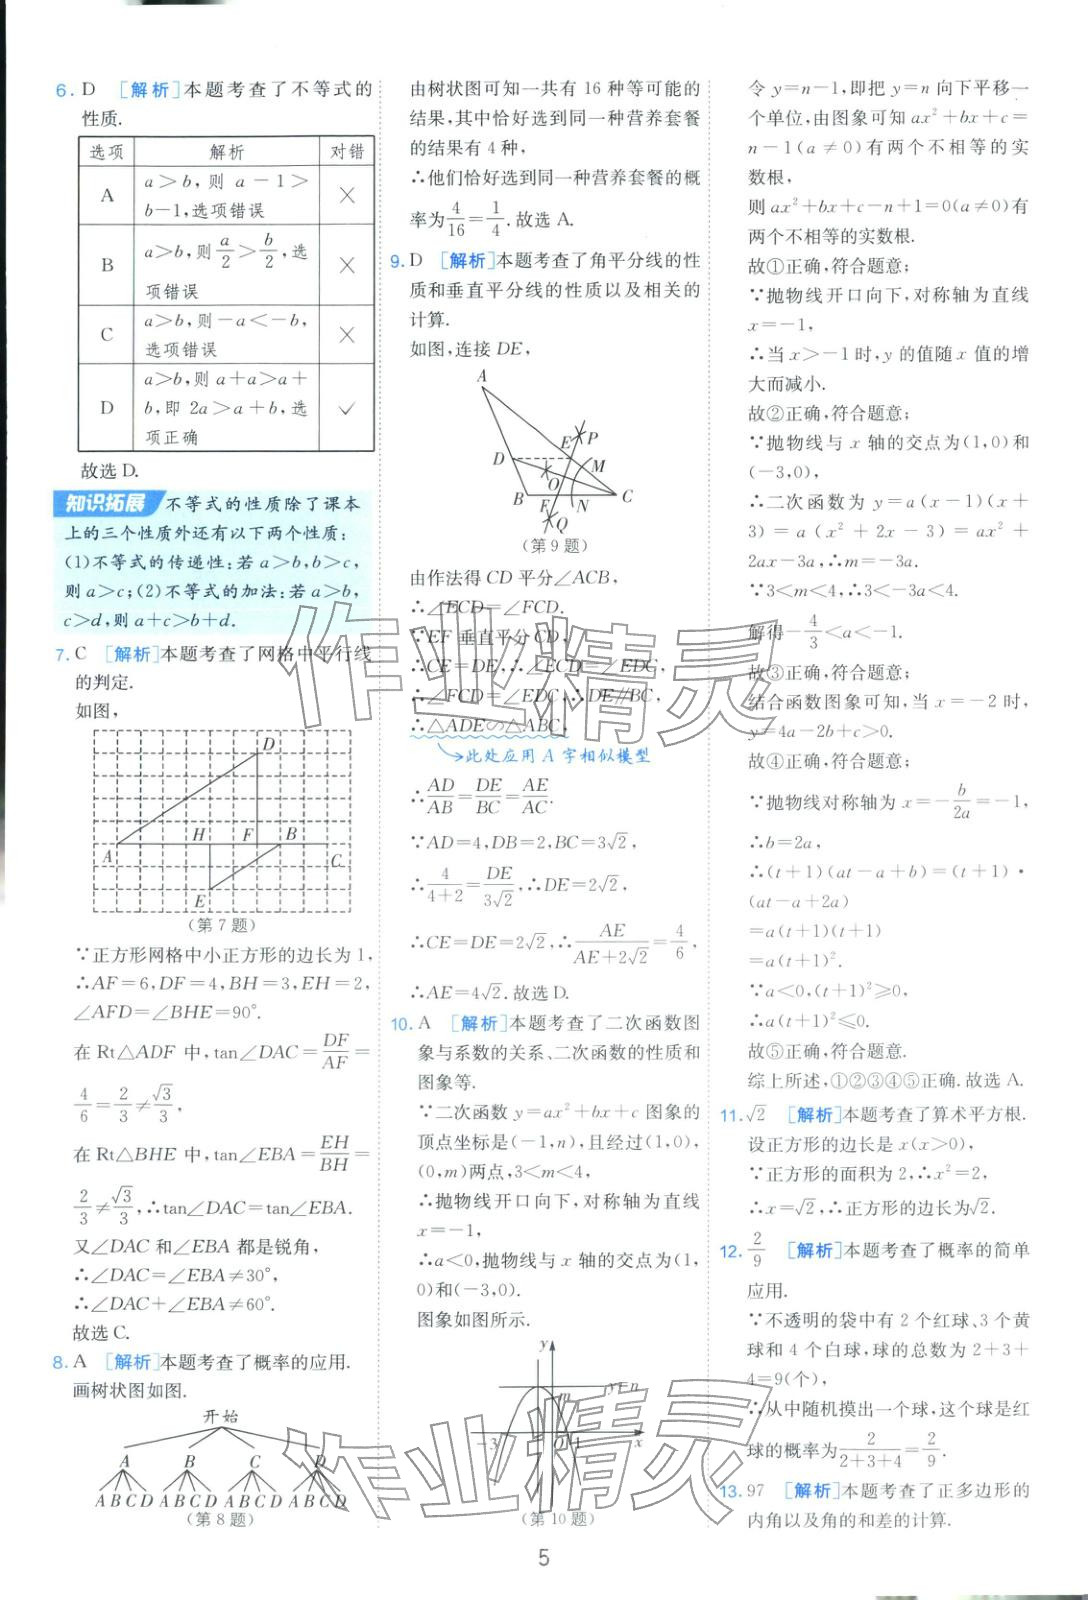 6. D [解析]本题考查了不等式的
性质.
选项 解析 对错
A a>b,则 a-1>
b-1,选项错误 ×
B a>b,则a/2>b/2,选
项错误 ×
C a>b,则-a<-b,
选项错误 ×
D a>b,则 a+a>a+
b,即 2a>a+b,选
项正确 ✓
故选 D.
知识拓展 不等式的性质除了课本
上的三个性质外还有以下两个性质:
(1)不等式的传递性:若 a>b,b>c,
则 a>c;(2)不等式的加法:若 a>b,
c>d,则 a+c>b+d.
7. C [解析]本题考查了网格中平行线
的判定.
如图,
D
H F B
A C
E
(第 7 题)
∵正方形网格中小正方形的边长为 1,
∴AF=6,DF=4,BH=3,EH=2,
∠AFD=∠BHE=90°.
在 Rt△ADF 中,tan∠DAC=DF/AF=
4/6=2/3≠√3/3,
在 Rt△BHE 中,tan∠EBA=EH/BH=
2/3≠√3/3,∴tan∠DAC=tan∠EBA.
又∠DAC 和∠EBA 都是锐角,
∴∠DAC=∠EBA≠30°,
∴∠DAC+∠EBA≠60°.
故选 C.
8. A [解析]本题考查了概率的应用.
画树状图如图.
开始
A B C D
A B C D A B C D A B C D A B C D
(第 8 题)
由树状图可知一共有 16 种等可能的
结果,其中恰好选到同一种营养套餐
的结果有 4 种,
∴他们恰好选到同一种营养套餐的概
率为4/16=1/4.故选 A.
9. D [解析]本题考查了角平分线的性
质和垂直平分线的性质以及相关的
计算.
如图,连接 DE,
A
E P
D M
O
B F N C
Q
(第 9 题)
由作法得 CD 平分∠ACB,
∴∠ECD=∠FCD.
∵EF 垂直平分 CD,
∴CE=DE,∴∠ECD=∠EDC,
∴∠FCD=∠EDC,∴DE∥BC,
∴△ADE∽△ABC,
此处应用 A 字相似模型
∴AD/AB=DE/BC=AE/AC.
∵AD=4,DB=2,BC=3√2,
∴4/(4+2)=DE/(3√2),∴DE=2√2,
∴CE=DE=2√2,∴AE/(AE+2√2)=4/6,
∴AE=4√2.故选 D.
10. A [解析]本题考查了二次函数图
象与系数的关系、二次函数的性质和
图象等.
∵二次函数 y=ax²+bx+c 图象的
顶点坐标是(-1,n),且经过(1,0),
(0,m)两点,3<m<4,
∴抛物线开口向下,对称轴为直线
x=-1,
∴a<0,抛物线与 x 轴的交点为(1,
0)和(-3,0).
图象如图所示.
y
y=n
m
-3 O 1 x
(第 10 题)
令 y=n-1,即把 y=n 向下平移一
个单位,由图象可知 ax²+bx+c=
n-1(a≠0)有两个不相等的实
数根,
则 ax²+bx+c-n+1=0(a≠0)有
两个不相等的实数根.
故①正确,符合题意;
∵抛物线开口向下,对称轴为直线
x=-1,
∴当 x>-1时,y 的值随 x 值的增
大而减小.
故②正确,符合题意;
∵抛物线与 x 轴的交点为(1,0)和
(-3,0),
∴二次函数为 y=a(x-1)(x+
3)=a(x²+2x-3)=ax²+
2ax-3a,∴m=-3a.
∵3<m<4,∴3<-3a<4.
解得-4/3<a<-1.
故③正确,符合题意;
结合函数图象可知,当 x=-2 时,
y=4a-2b+c>0.
故④正确,符合题意;
∵抛物线对称轴为 x=-b/2a=-1,
∴b=2a,
∴(t+1)(at-a+b)=(t+1)·
(at-a+2a)
=a(t+1)(t+1)
=a(t+1)².
∵a<0,(t+1)²≥0,
∴a(t+1)²≤0.
故⑤正确,符合题意.
综上所述,①②③④⑤正确.故选 A.
11. √2 [解析]本题考查了算术平方根.
设正方形的边长是 x(x>0),
∵正方形的面积为 2,∴x²=2,
∴x=√2,∴正方形的边长为√2.
12. 2/9 [解析]本题考查了概率的简单
应用.
∵不透明的袋中有 2 个红球、3 个黄
球和 4 个白球,球的总数为 2+3+
4=9(个),
∴从中随机摸出一个球,这个球是红
球的概率为2/(2+3+4)=2/9.
13. 97 [解析]本题考查了正多边形的
内角以及角的和差的计算.
作业精灵
作业精灵
5